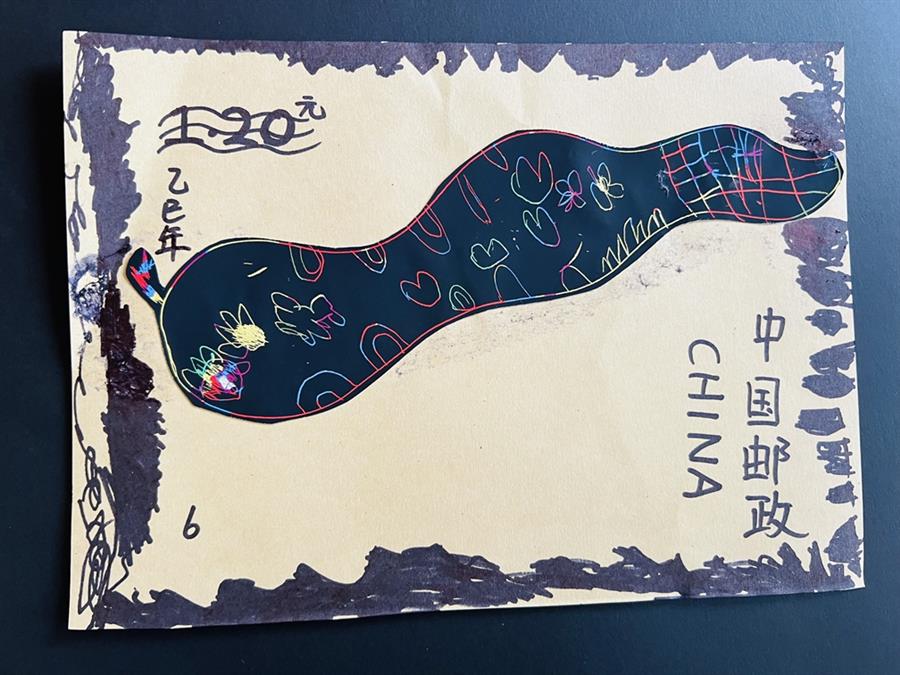 1.20元
乙巳年
中国邮政
CHINA
6